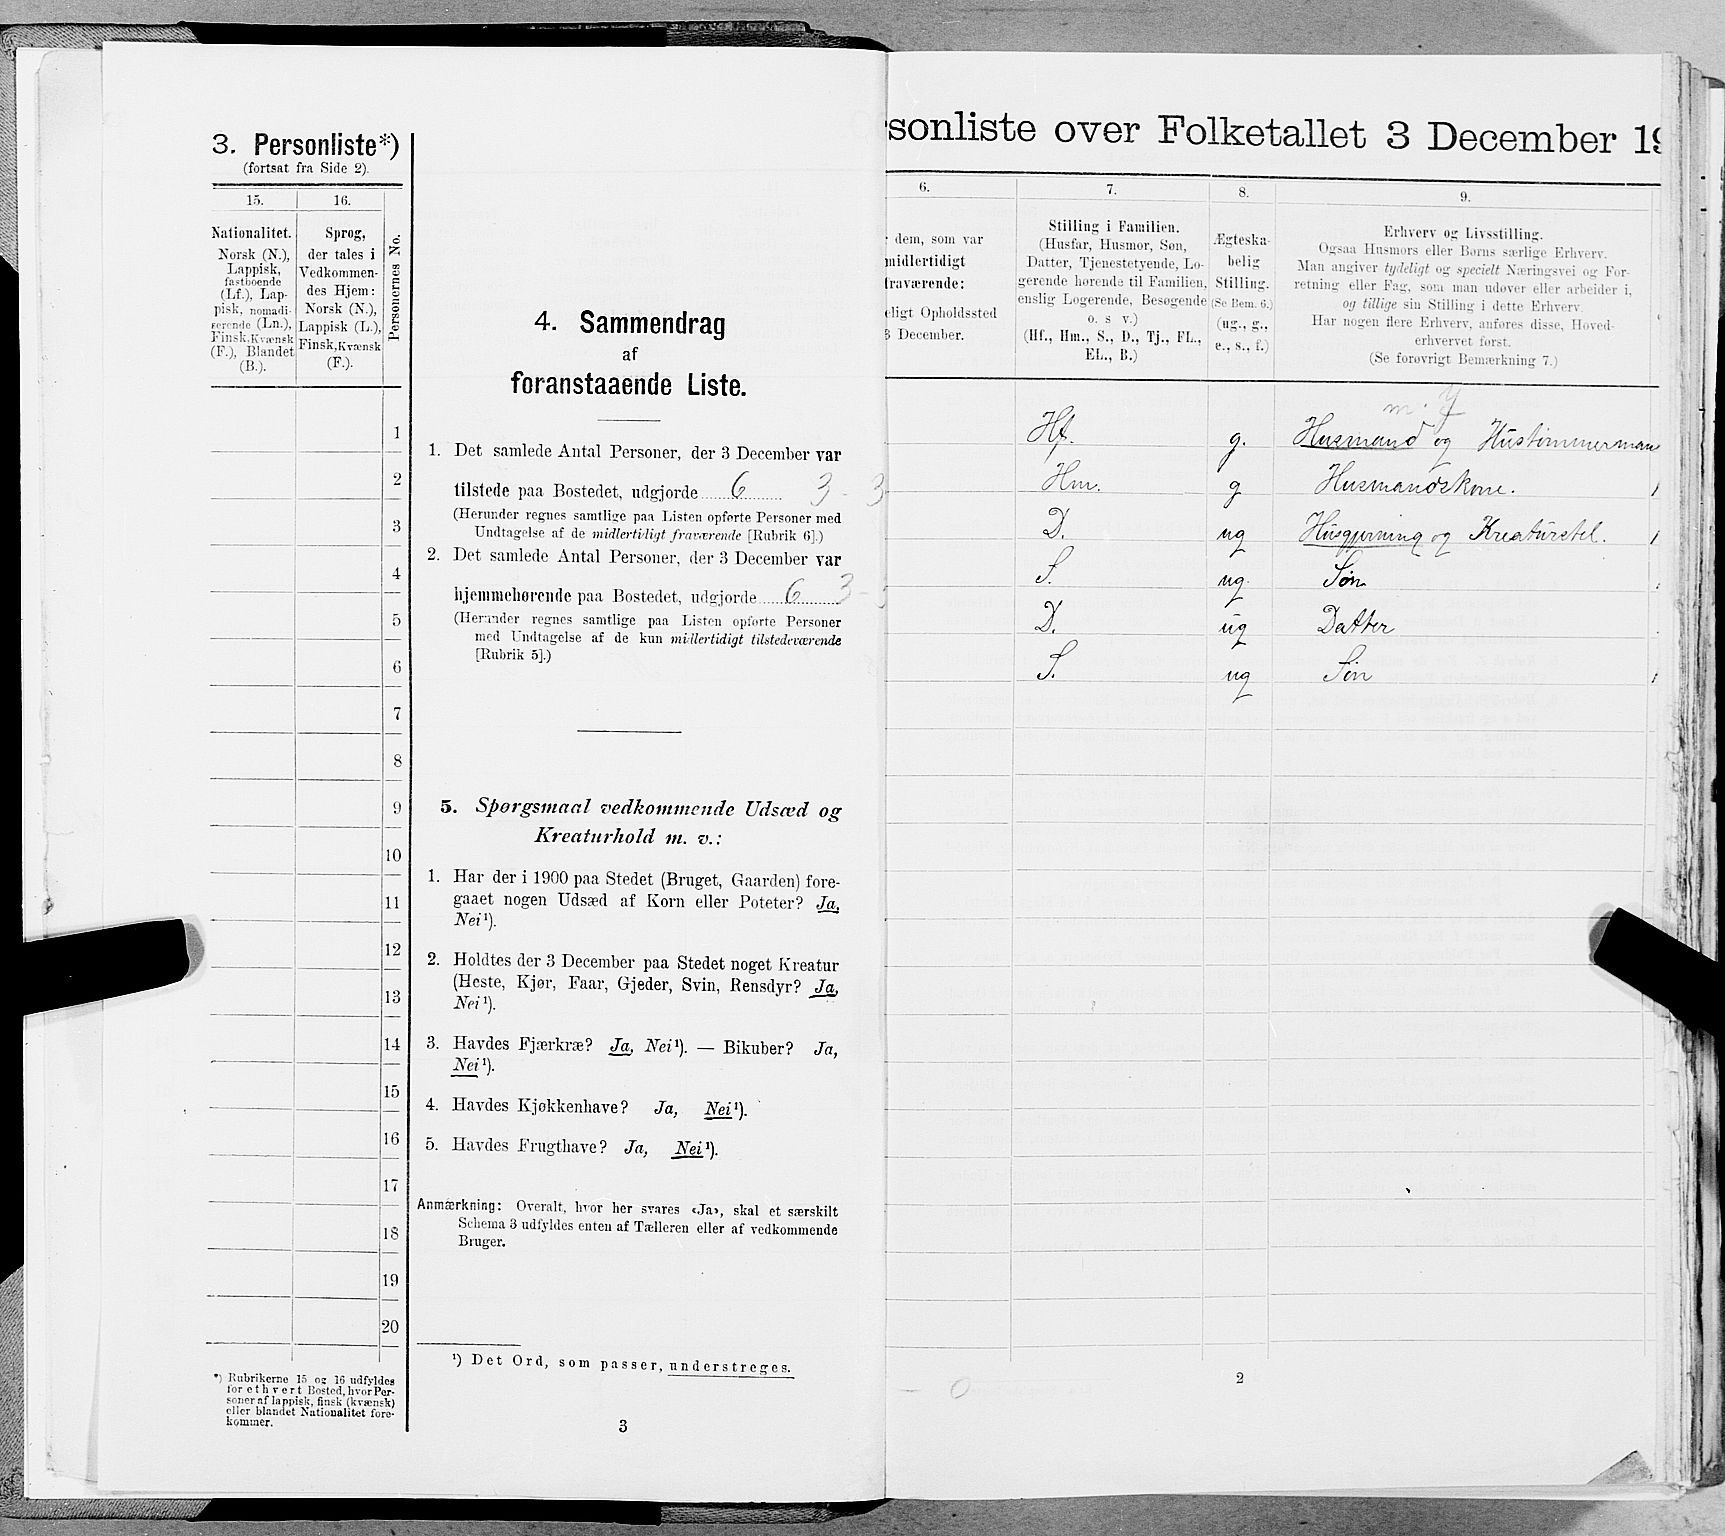 3. Personliste*)
(fortsat fra Side 2).
15.
16.
Nationalitet.
Norsk (N.),
Lappisk,
fastboende
(Lf.), Lap-
pisk, nomadi-
serende (Ln.),
Finsk, Kvænsk
(F.), Blandet
(B.).
Sprog,
der tales i
Vedkommen-
des Hjem:
Norsk (N.),
Lappisk (L.),
Finsk, Kvænsk
(F.).
Personernes No.
1
2
3
4
5
6
7
8
9
10
11
12
13
14
15
16
17
18
19
20
*) Rubrikerne 15 og 16 udfyldes
for ethvert Bosted, hvor Per-
soner af lappisk, finsk (kvænsk)
eller blandet Nationalitet fore-
kommer.
4. Sammendrag
af
foranstaaende Liste.
1. Det samlede Antal Personer, der 3 December var
tilstede paa Bostedet, udgjorde 6 3 - 3
(Herunder regnes samtlige paa Listen opførte Personer med
Undtagelse af de midlertidigt fraværende [Rubrik 6].)
2. Det samlede Antal Personer, der 3 December var
hjemmehørende paa Bostedet, udgjorde 6 3 -
(Herunder regnes samtlige paa Listen opførte Personer
med Undtagelse af de kun midlertidigt tilstedeværende
[Rubrik 5].)
5. Spørgsmaal vedkommende Udsæd og
Kreaturhold m. v.:
1. Har der i 1900 paa Stedet (Bruget, Gaarden) fore-
gaaet nogen Udsæd af Korn eller Poteter? Ja,
Nei¹).
2. Holdtes der 3 December paa Stedet noget Kreatur
(Heste, Kjør, Faar, Gjeder, Svin, Rensdyr? Ja,
Nei¹).
3. Havdes Fjærkræ? Ja, Nei¹). — Bikuber? Ja,
Nei¹).
4. Havdes Kjøkkenhave? Ja, Nei¹).
5. Havdes Frugthave? Ja, Nei¹).
Anmærkning: Overalt, hvor her svares «Ja», skal et særskilt
Schema 3 udfyldes enten af Tælleren eller af vedkommende
Bruger.
¹) Det Ord, som passer, understreges.
3
rsonliste over Folketallet 3 December 19
6.
7.
8.
9.
dem, som var
midlertidigt
fraværende:
eligt Opholdssted
3 December.
Stilling i Familien.
(Husfar, Husmor, Søn,
Datter, Tjenestetyende, Lo-
gerende hørende til Familien,
enslig Logerende, Besøgende
o. s v.)
(Hf., Hm., S., D., Tj., FL.,
EL., B.)
Ægteska-
belig
Stilling.
(Se Bem. 6.)
(ug., g.,
e., s., f.)
Erhverv og Livsstilling.
Ogsaa Husmors eller Børns særlige Erhverv.
Man angiver tydeligt og specielt Næringsvei og For-
retning eller Fag, som man udøver eller arbeider i,
og tillige sin Stilling i dette Erhverv.
Har nogen flere Erhverv, anføres disse, Hoved-
erhvervet først.
(Se forøvrigt Bemærkning 7.)
m. y
Hf. g. Husmand og Hustømmerman
Hm. g Husmandskone.
D. ug Husgjerning og Kreaturstel.
S. ug. Søn
D. ug Datter
S. ug Søn
- 0
2